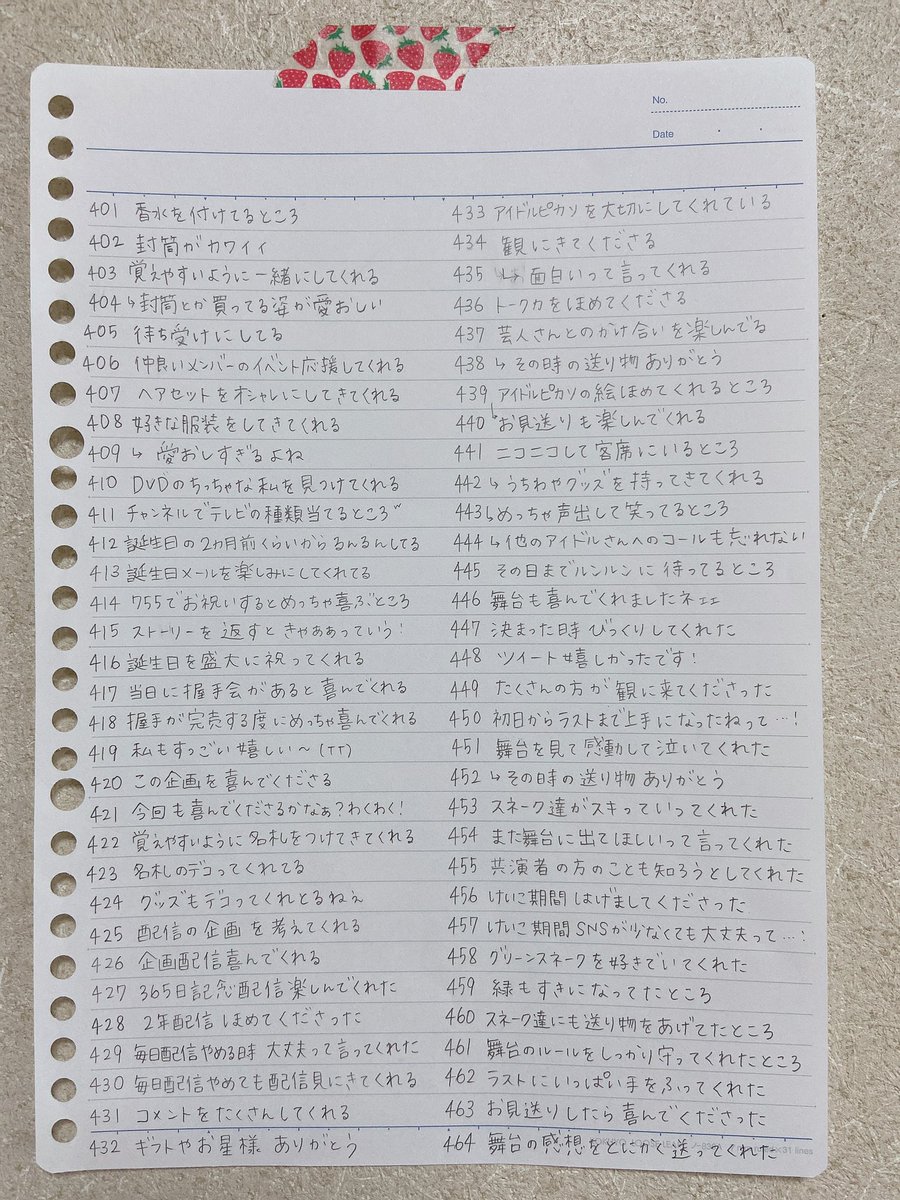 No.
Date
401 香水を付けてるところ
402 封筒がカワイイ
403 覚えやすいように一緒にしてくれる
404 ↳封筒とか買ってる姿が愛おしい
405 待ち受けにしてる
406 仲良いメンバーのイベント応援してくれる
407 ヘアセットをオシャレにしてきてくれる
408 好きな服装をしてきてくれる
409 ↳ 愛おしすぎるよね
410 DVDのちっちゃな私を見つけてくれる
411 チャンネルでテレビの種類当てるところ
412 誕生日の2カ月前くらいからるんるんしてる
413 誕生日メールを楽しみにしてくれてる
414 755でお祝いするとめっちゃ喜ぶところ
415 ストーリーを返すときゃああっていう!
416 誕生日を盛大に祝ってくれる
417 当日に握手会があると喜んでくれる
418 握手が完売する度にめっちゃ喜んでくれる
419 私もすっごい嬉しい〜(TT)
420 この企画を喜んでくださる
421 今回も喜んでくださるかなぁ?わくわく!
422 覚えやすいように名札をつけてきてくれる
423 名札のデコってくれてる
424 グッズもデコってくれとるねぇ
425 配信の企画を考えてくれる
426 企画配信喜んでくれる
427 365日記念配信楽しんでくれた
428 2年配信ほめてくださった
429 毎日配信やめる時 大丈夫って言ってくれた
430 毎日配信やめても配信見にきてくれる
431 コメントをたくさんしてくれる
432 ギフトやお星様 ありがとう
433 アイドルピカソを大切にしてくれている
434 観にきてくださる
435 面白いって言ってくれる
436 トーク力をほめてくださる
437 芸人さんとのかけ合いを楽しんでる
438 ↳その時の送り物ありがとう
439 アイドルピカソの絵ほめてくれるところ
440 お見送りも楽しんでくれる
441 ニコニコして客席にいるところ
442 ↳うちわやグッズを持ってきてくれる
443 ↳めっちゃ声出して笑ってるところ
444 ↳他のアイドルさんへのコールも忘れない
445 その日までルンルンに待ってるところ
446 舞台も喜んでくれましたネェェ
447 決まった日時びっくりしてくれた
448 ツイート嬉しかったです!
449 たくさんの方が観に来てくださった
450 初日からラストまで上手になったねって…!
451 舞台を見て感動して泣いてくれた
452 ↳その日時の送り物ありがとう
453 スネーク達がスキっていってくれた
454 また舞台に出てほしいって言ってくれた
455 共演者の方のことも知ろうとしてくれた
456 けいこ期間はげましてくださった
457 けいこ期間SNSが少なくても大丈夫って…!
458 グリーンスネークを好きでいてくれた
459 緑もすきになってたところ
460 スネーク達にも送り物をあげてたところ
461 舞台のルールをしっかり守ってくれたところ
462 ラストにいっぱい手をふってくれた
463 お見送りしたら喜んでくださった
464 舞台の感想をとにかく送ってくれた
31 lines